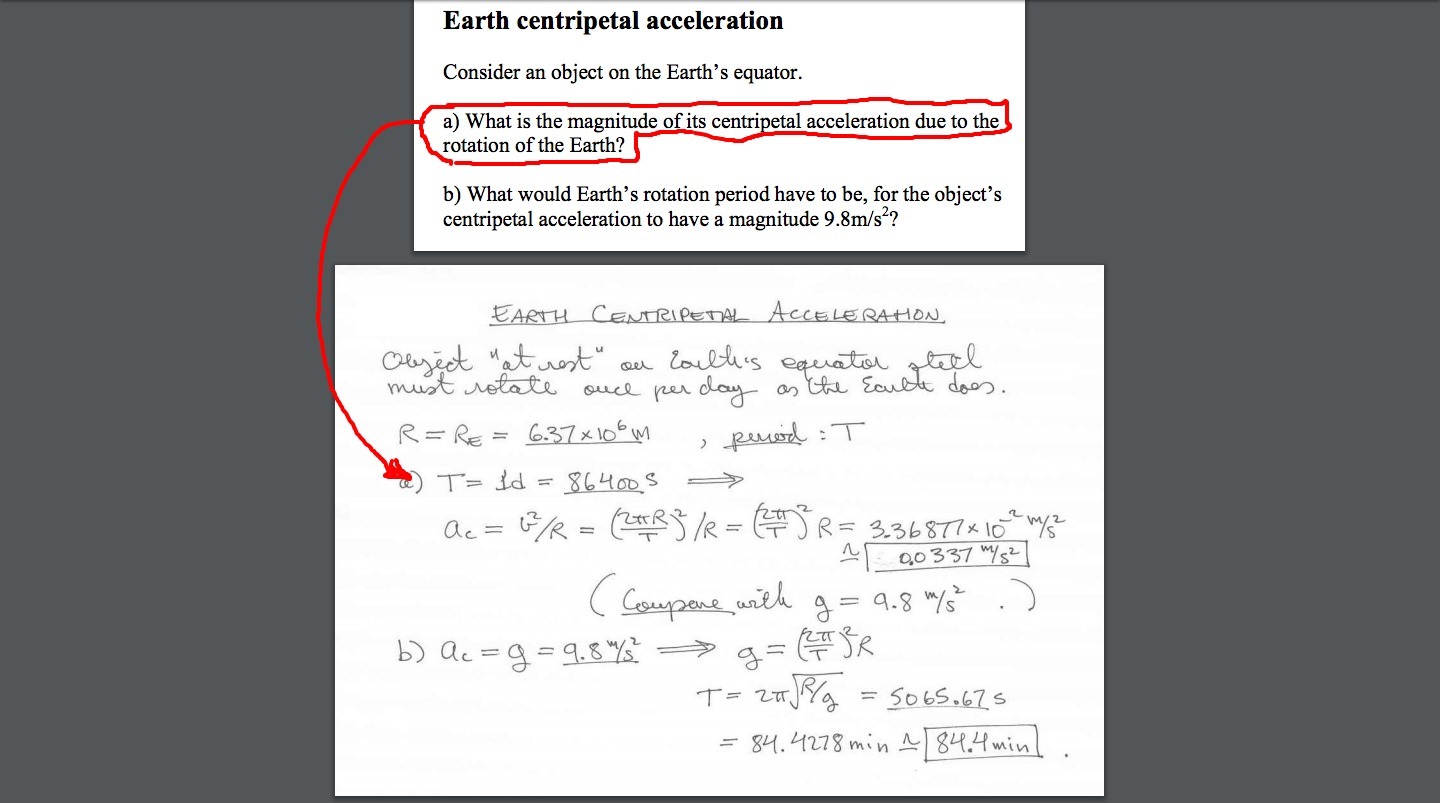 Earth centripetal acceleration
Consider an object on the Earth’s equator.
a) What is the magnitude of its centripetal acceleration due to the
rotation of the Earth?
b) What would Earth’s rotation period have to be, for the object’s
centripetal acceleration to have a magnitude 9.8m/s²?
EARTH CENTRIPETAL ACCELERATION
Object "at rest" on Earth's equator still
must rotate once per day as the Earth does.
R = R_E = 6.37 × 10⁶ m , period : T
a) T = 1d = 86400 s ⟹
a_c = v²/R = (2πR/T)²/R = (2π/T)² R = 3.36877 × 10⁻² m/s²
≃ 0.0337 m/s²
(Compare with g = 9.8 m/s² .)
b) a_c = g = 9.8 m/s² ⟹ g = (2π/T)² R
T = 2π√(R/g) = 5065.67 s
= 84.4278 min ≃ 84.4 min .